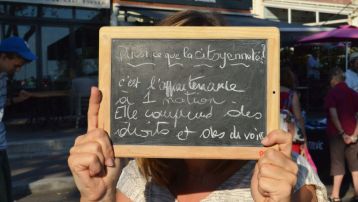 Qu'est ce que la citoyenneté?
c'est l'appartenance
à 1 nation.
Elle comprend des
droits et des devoirs